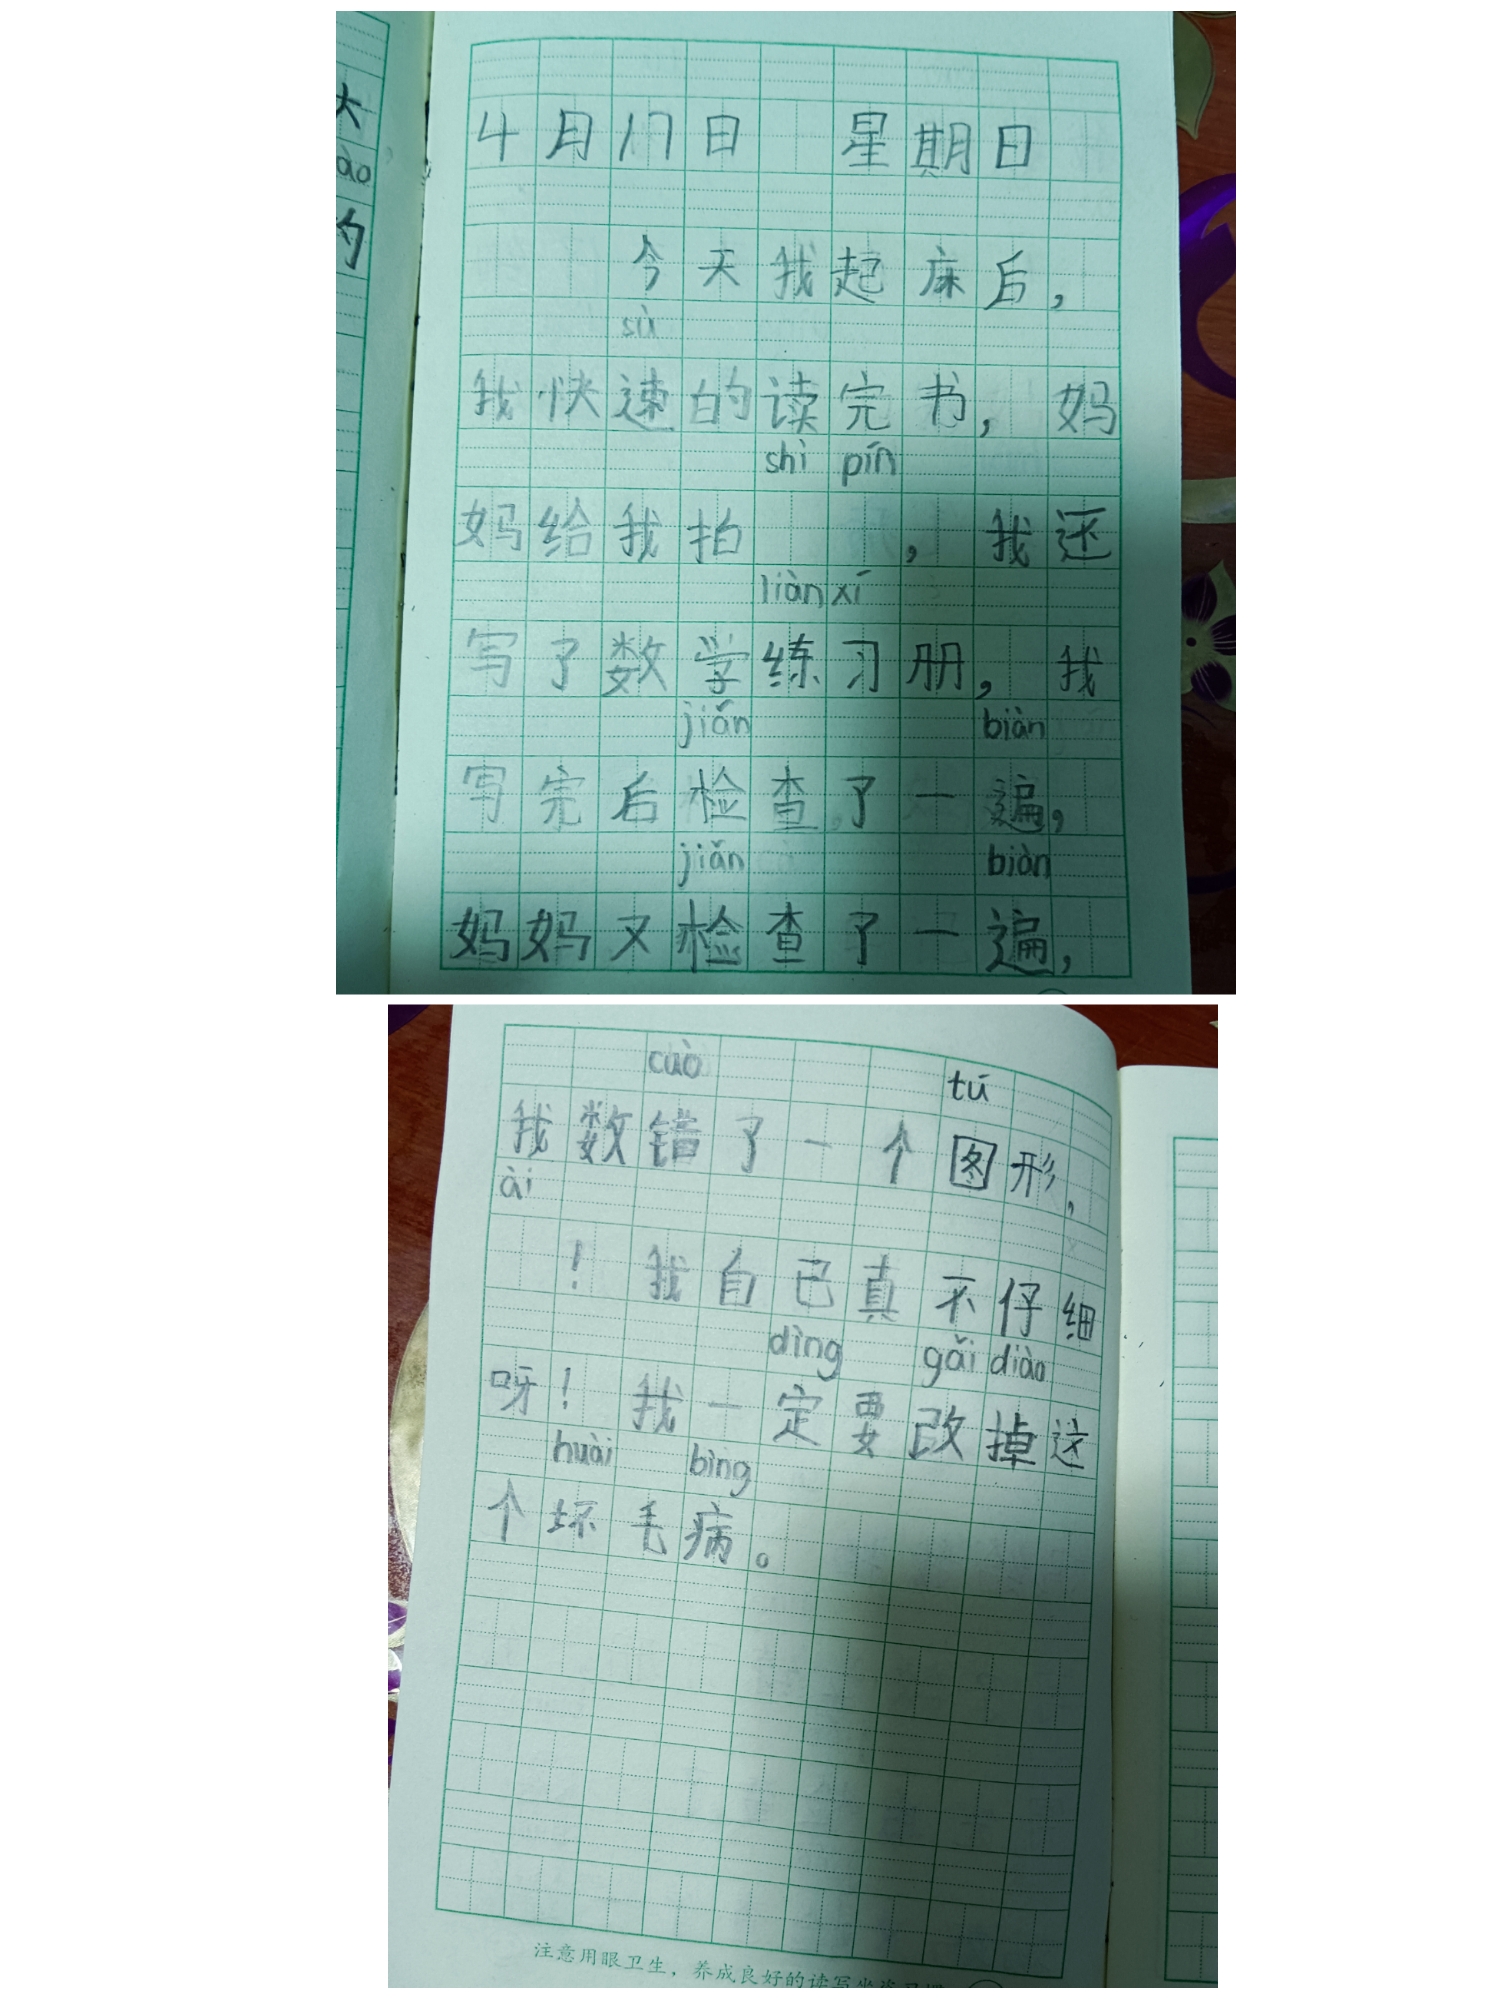 大
ào
的
4月17日 星期日
今天我起床后，
sù
我快速的读完书，妈
shì pín
妈给我拍 ，我还
liàn xí
写了数学练习册，我
jiǎn biàn
写完后检查了一遍，
jiǎn biàn
妈妈又检查了一遍，
cuò tú
我数错了一个图形，
ài
！我自己真不仔细
dìng gǎi diào
呀！我一定要改掉这
huài bìng
个坏毛病。
注意用眼卫生，养成良好的读写坐姿习惯